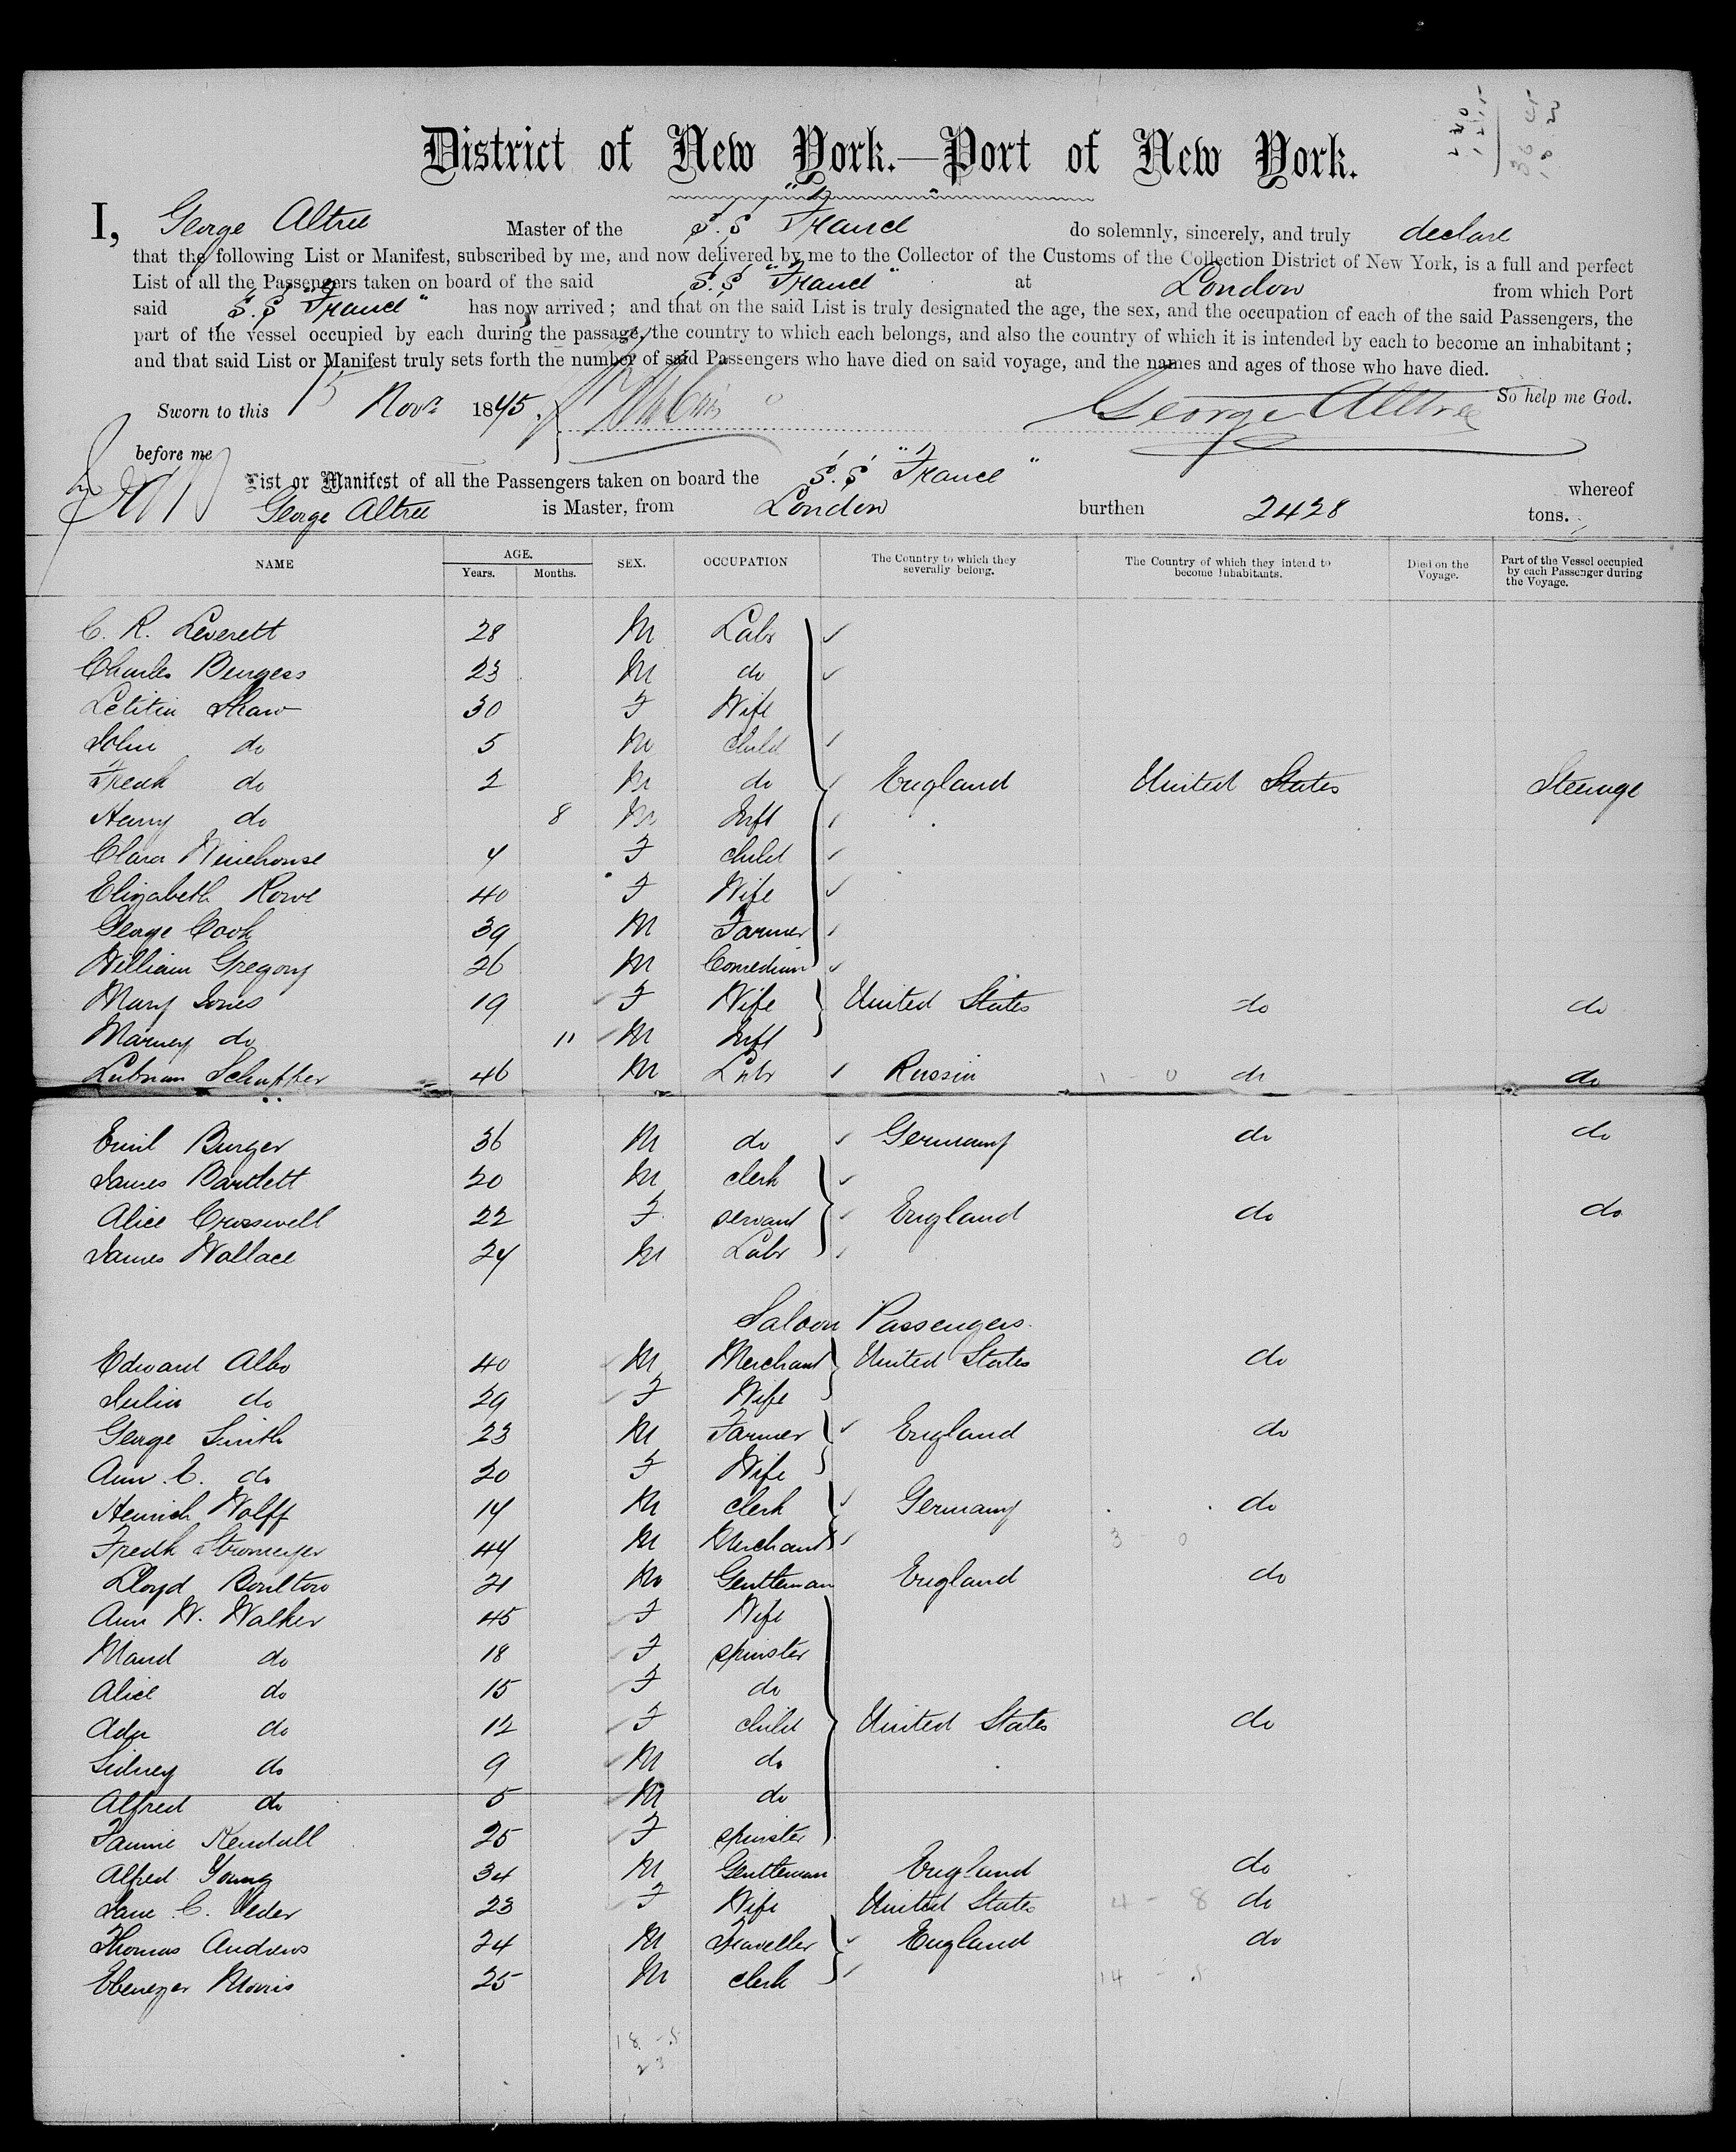 District of New York.—Port of New York.
I, George Altree Master of the S.S "France" do solemnly, sincerely, and truly declare
that the following List or Manifest, subscribed by me, and now delivered by me to the Collector of the Customs of the Collection District of New York, is a full and perfect
List of all the Passengers taken on board of the said S.S "France" at London from which Port
said S.S "France" has now arrived; and that on the said List is truly designated the age, the sex, and the occupation of each of the said Passengers, the
part of the vessel occupied by each during the passage, the country to which each belongs, and also the country of which it is intended by each to become an inhabitant;
and that said List or Manifest truly sets forth the number of said Passengers who have died on said voyage, and the names and ages of those who have died.
So help me God.
Sworn to this 15 Novr 1875. George Altree
before me
List or Manifest of all the Passengers taken on board the S.S "France" whereof
George Altree is Master, from London burthen 2428 tons.
NAME AGE. SEX. OCCUPATION The Country to which they severally belong. The Country of which they intend to become Inhabitants. Died on the Voyage. Part of the Vessel occupied by each Passenger during the Voyage.
Years. Months.
C. R. Leverett 28 M Labr
Charles Burgess 23 M do
Letitia Shaw 30 F Wife
John do 5 M child
Fredk do 2 M do England United States Steerage
Harry do 8 M Inft
Clara Winehouse 4 F child
Elizabeth Rowe 40 F Wife
George Cook 39 M Farmer
William Gregory 26 M Comedian
Mary Jones 19 F Wife United States do do
Marney do 11 M Inft
Schaffer 46 M Labr Russia do do
Emil Burger 36 M do Germany do do
James Bartlett 20 M clerk
Alice Crosswell 22 F servant England do do
James Wallace 24 M Labr
Saloon Passengers.
Edward Albo 40 M Merchant United States do
Julia do 29 F Wife
George Smith 23 M Farmer England do
Ann C. do 20 F Wife
Heinrich Wolff 14 M clerk Germany do
Fredk Stromeyer 44 M Merchant 3 - 0
Lloyd Boulton 21 M Gentleman England do
Ann W. Walker 45 F Wife
Maud do 18 F spinster
Alice do 15 F do
Ada do 12 F child United States do
Sidney do 9 M do
Alfred do 5 M do
Fannie Kendall 25 F spinster
Alfred Young 34 M Gentleman England do
Jane C. Veder 23 F Wife United States 4 - 8 do
Thomas Andrews 24 M Traveller England do
Ebenezer Morris 25 M clerk 14 - 5
18 - 5
23